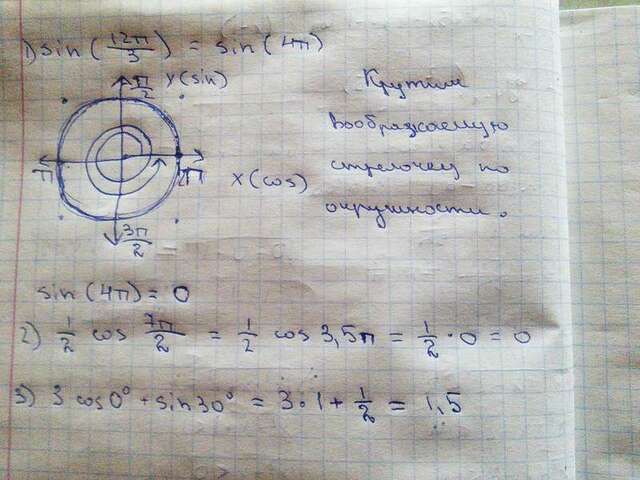 1) sin(12π/3) = sin(4π)
π/2 y(sin)
Крутим
воображаемую
стрелочку по
окружности.
π
2π
x(cos)
3π/2
sin(4π) = 0
2) 1/2 cos 7π/2 = 1/2 cos 3,5π = 1/2 · 0 = 0
3) 3 cos0° + sin30° = 3 · 1 + 1/2 = 1,5